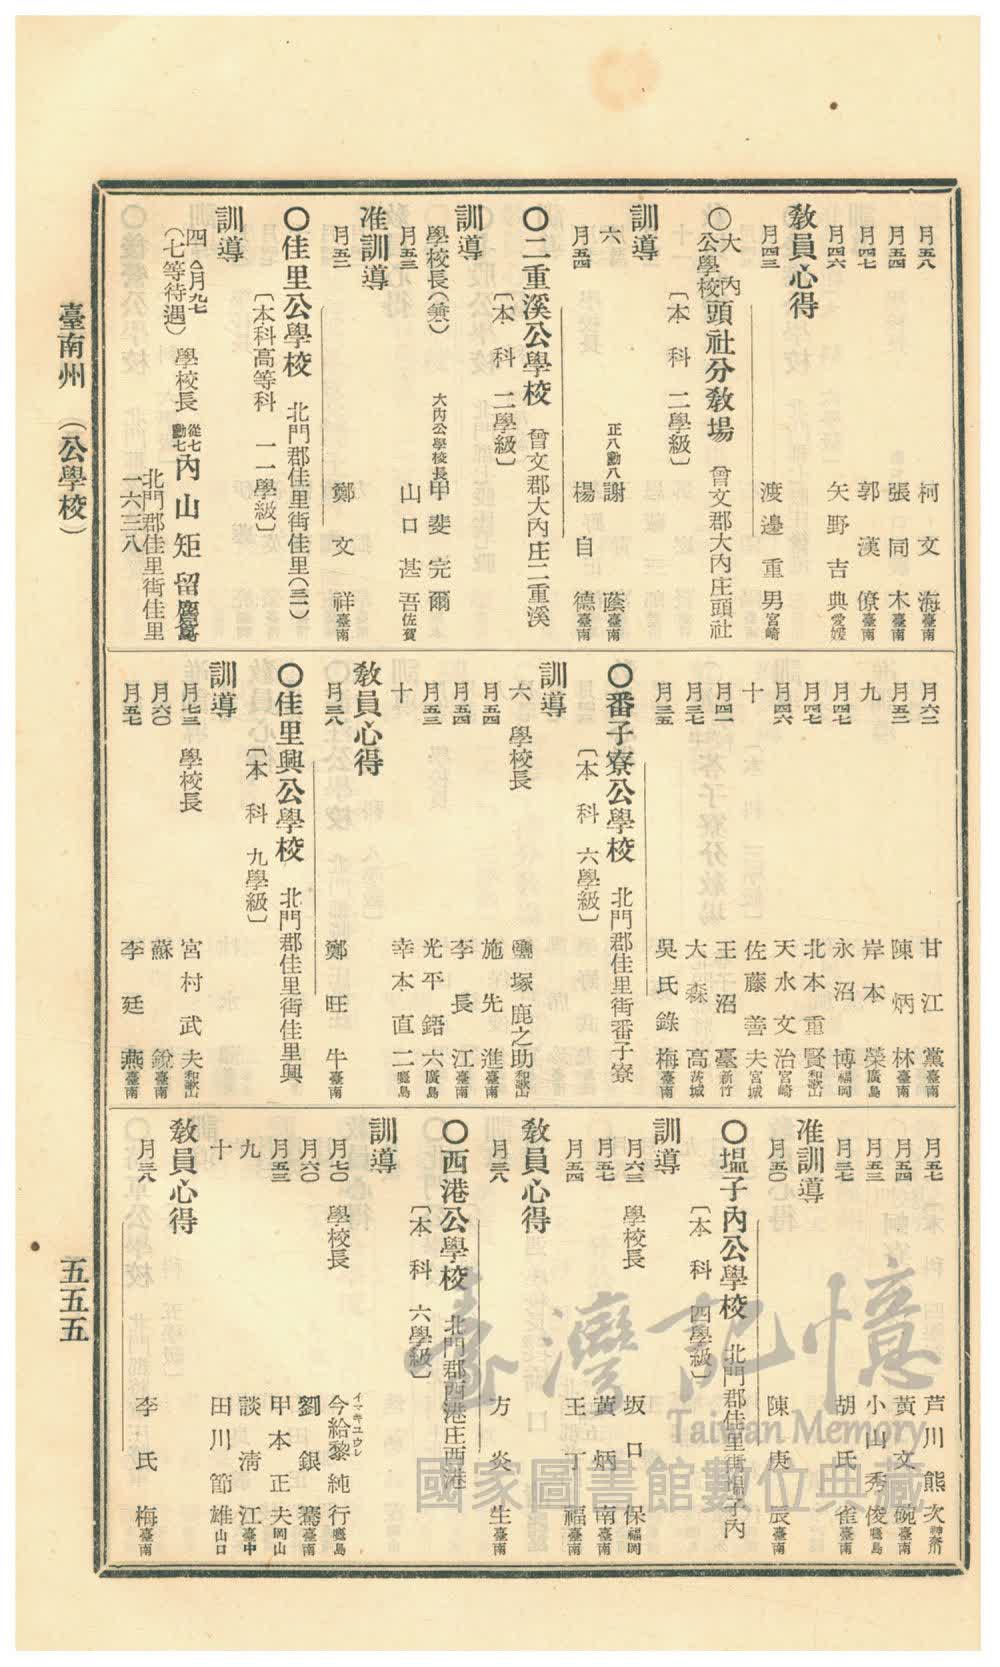 月五八 柯文海 臺南
月五四 張同木 臺南
月四七 郭漢僚 臺南
月四六 矢野吉典 愛媛
教員心得
月四三 渡邊重男 宮崎
〇大內公學校頭社分教場 曾文郡大內庄頭社
〔本科 二學級〕
訓導
六 正八勳八 謝蔭 臺南
月五四 楊自德 臺南
〇二重溪公學校 曾文郡大內庄二重溪
〔本科 二學級〕
訓導
學校長(兼) 大內公學校長 甲斐完爾
月五三 山口甚吾 佐賀
准訓導
月五二 鄭文祥 臺南
〇佳里公學校 北門郡佳里街佳里(三一)
〔本科高等科 一一學級〕
訓導
四 (七等待遇) 學校長 從七勳七 內山矩留
北門郡佳里街佳里一六三八
月六二 甘江黨 臺南
月五二 陳炳林 臺南
九 岸本榮 廣島
月四七 永沼博 福岡
月四七 北本重賢 和歌山
月四六 天水文治 宮崎
十 佐藤善夫 宮城
月四一 王沼臺 新竹
月三七 大森高 茨城
月三五 吳氏錄梅 臺南
〇番子寮公學校 北門郡佳里街番子寮
〔本科 六學級〕
訓導
六 學校長 鹽塚鹿之助 和歌山
月五四 施先進 臺南
月五四 李長江 臺南
月五三 光平鋙六 廣島
十 幸本直二 鹿兒島
教員心得
月三八 鄭旺牛 臺南
〇佳里興公學校 北門郡佳里街佳里興
〔本科 九學級〕
訓導
月七三 學校長 宮村武夫 和歌山
月六〇 蘇銳 臺南
月五七 李廷燕 臺南
月五七 芦川熊次 神奈川
月五四 黃文碗 臺南
月五三 小山秀俊 鹿兒島
月三七 胡氏雀 臺南
准訓導
月五〇 陳庚辰 臺南
〇塭子內公學校 北門郡佳里街塭子內
〔本科 四學級〕
訓導
月六三 學校長 坂口保 福岡
月五七 黃炳南 臺南
月五四 王丁福 臺南
教員心得
月三八 方炎生 臺南
〇西港公學校 北門郡西港庄西港
〔本科 六學級〕
訓導
月七〇 學校長 今給黎純行 鹿兒島
イマキユウレ
月六〇 劉銀騫 臺南
月五三 甲本正夫 岡山
九 談清江 臺中
十 田川節雄 山口
教員心得
月三八 李氏梅 臺南
臺南州 (公學校)
五五五
臺灣記憶
Taiwan Memory
國家圖書館數位典藏